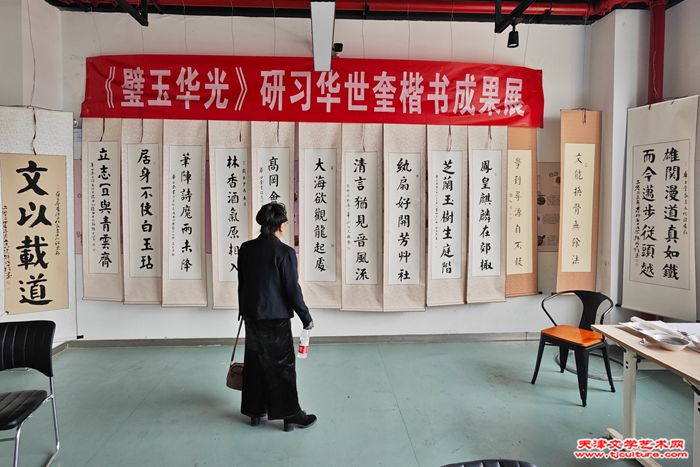 《璧玉华光》研习华世奎楷书成果展
文以載道
立志宜與青雲齊
居身不使白玉玷
筆陣詩魔兩未降
林香酒氣原相入
高岡
大海欲觀龍起處
清言猶見晉風流
紈扇好開芳艸社
芝蘭玉樹生庭階
鳳皇麒麟在郊棷
學到尋源自不疑
文能換骨無餘法
雄關漫道真如鐵
而今邁步從頭越
天津文学艺术网
www.tjculture.com